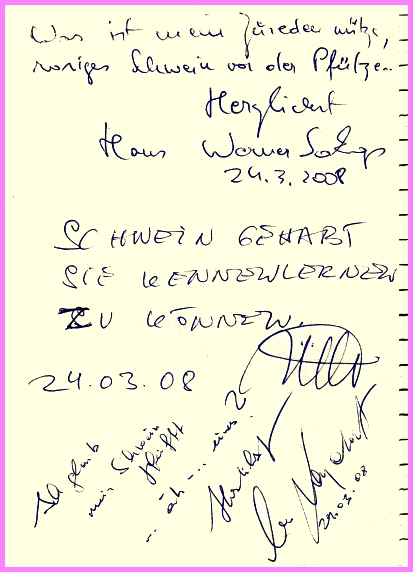 Was ist mein Zureden nütze,
rosiges Schwein vor der Pfütze..
Herzlichst
Hans Werner
24.3.2008
SCHWEIN GEHABT
SIE KENNENLERNEN
ZU KÖNNEN.
24.03.08
Ich glaub
mein Schwein
pfeifft
... äh -... eines?
Herzlichst
24.03.08